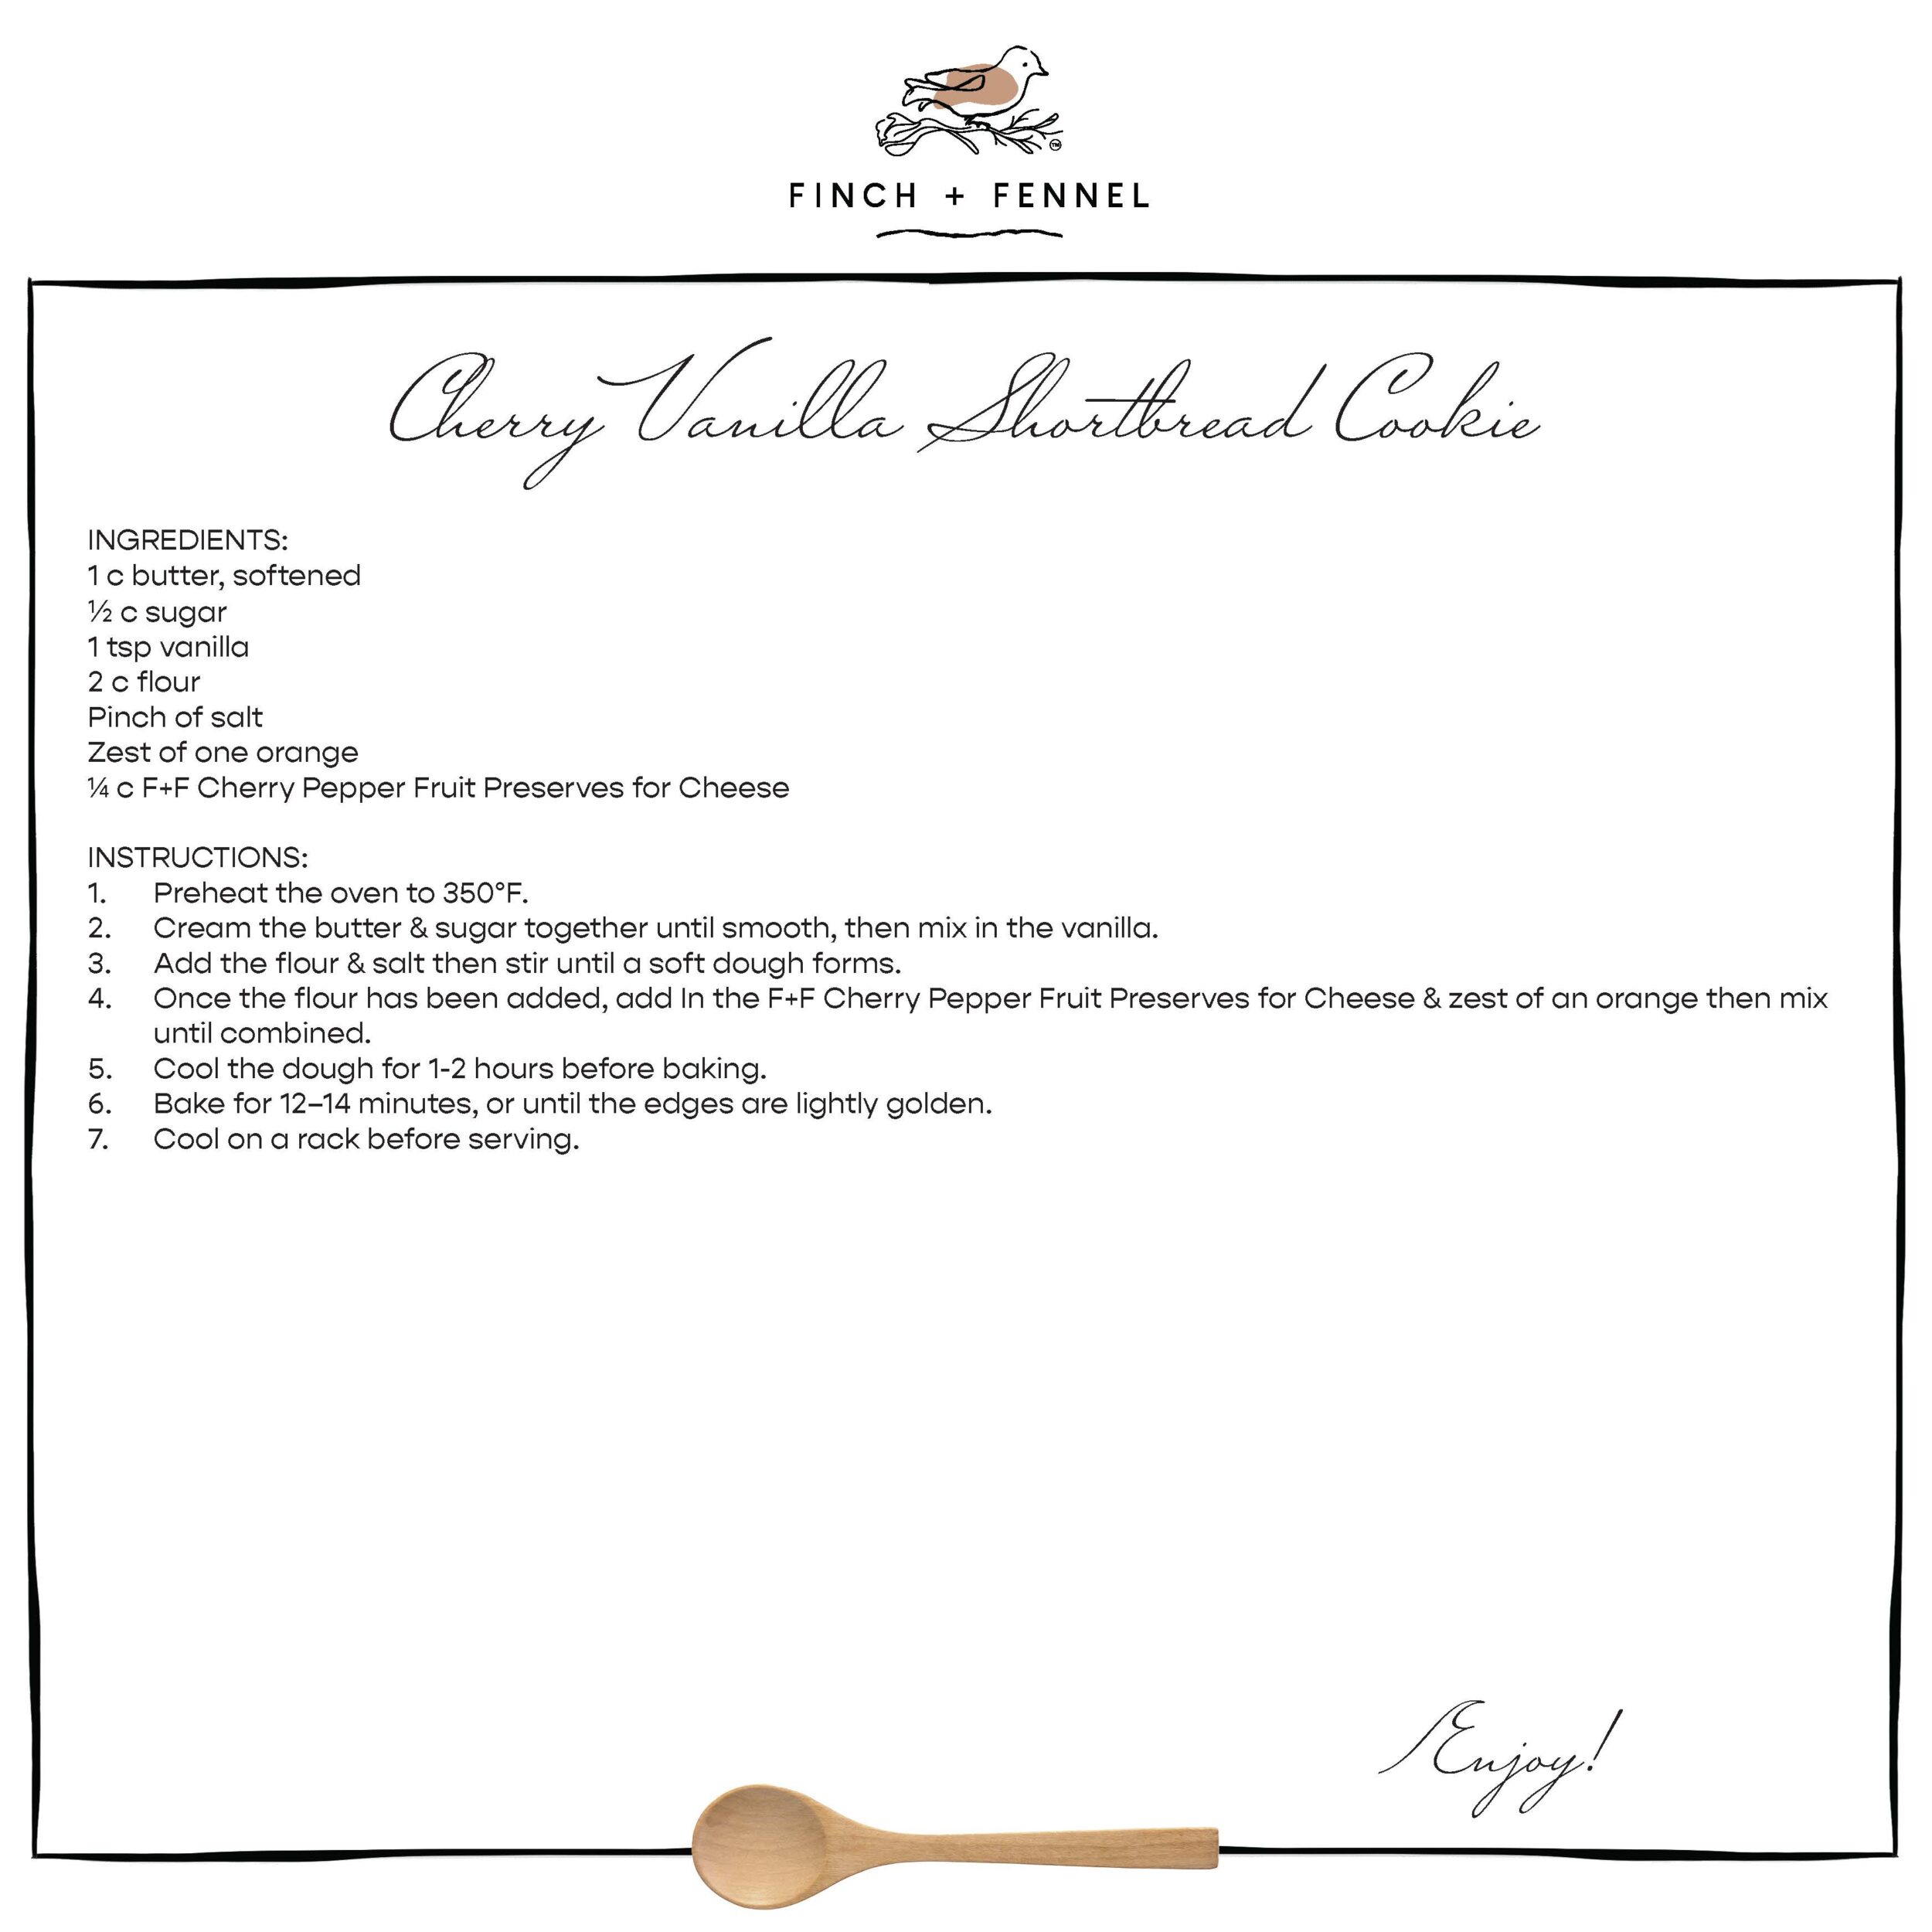 TM
FINCH + FENNEL
Cherry Vanilla Shortbread Cookie
INGREDIENTS:
1 c butter, softened
½ c sugar
1 tsp vanilla
2 c flour
Pinch of salt
Zest of one orange
¼ c F+F Cherry Pepper Fruit Preserves for Cheese
INSTRUCTIONS:
1. Preheat the oven to 350°F.
2. Cream the butter & sugar together until smooth, then mix in the vanilla.
3. Add the flour & salt then stir until a soft dough forms.
4. Once the flour has been added, add In the F+F Cherry Pepper Fruit Preserves for Cheese & zest of an orange then mix
until combined.
5. Cool the dough for 1-2 hours before baking.
6. Bake for 12–14 minutes, or until the edges are lightly golden.
7. Cool on a rack before serving.
Enjoy!